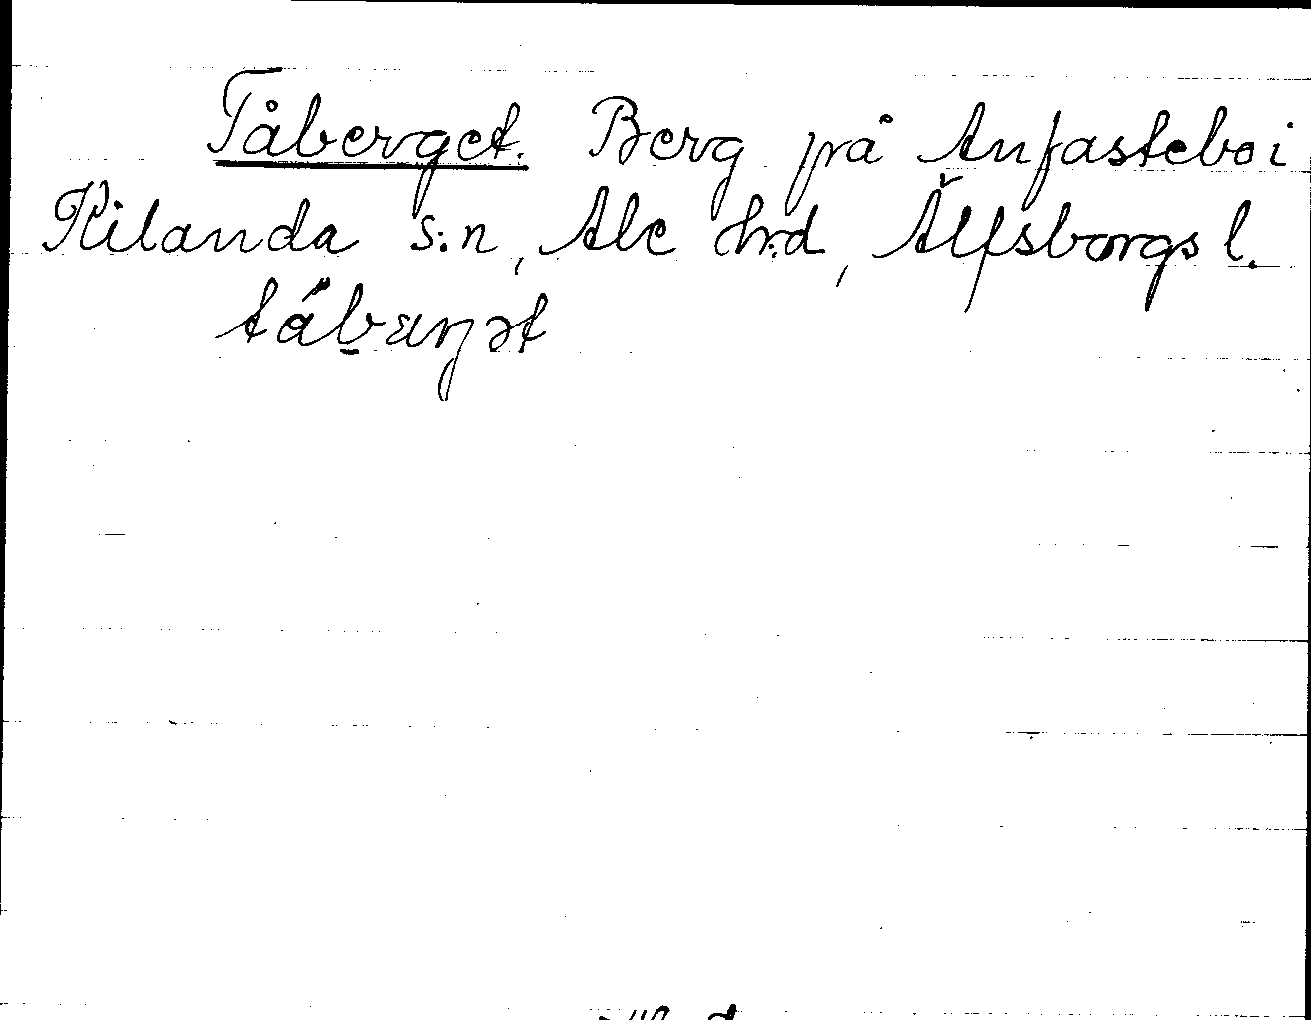 Tåberget. Berg på Anfastebo i
Kilanda s:n, Ale h:d, Älfsborgs l.